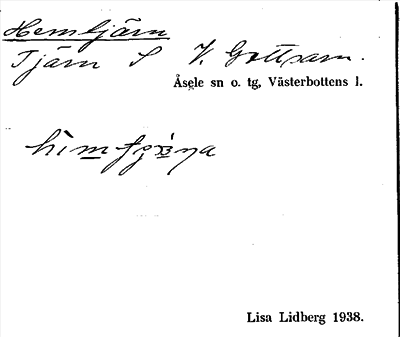 Hemtjärn
Tjärn S V. Gottsam.
Åsele sn o. tg, Västerbottens l.
Lisa Lidberg 1938.